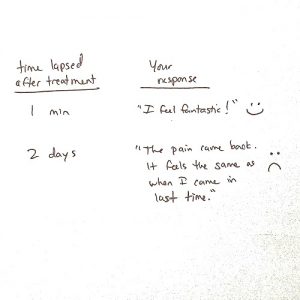 time lapsed
after treatment
Your
response
1 min
"I feel fantastic!"
2 days
"The pain came back.
It feels the same as
when I came in
last time."